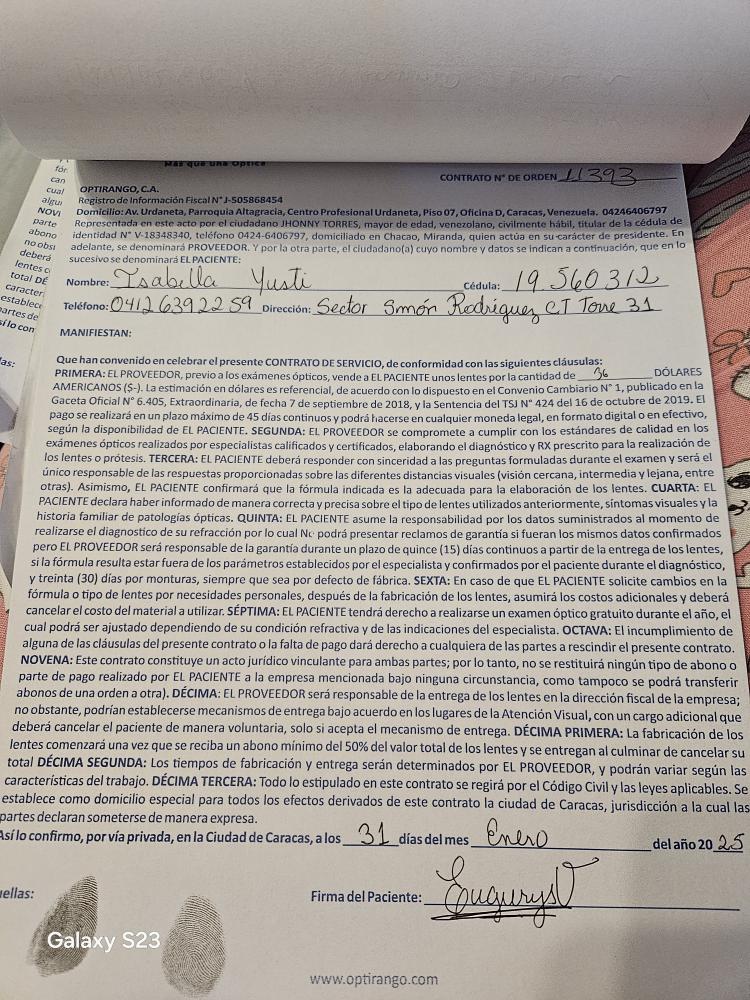 Más que una Óptica
CONTRATO N° DE ORDEN 11393
OPTIRANGO, C.A.
Registro de Información Fiscal N° J-505868454
Domicilio: Av. Urdaneta, Parroquia Altagracia, Centro Profesional Urdaneta, Piso 07, Oficina D, Caracas, Venezuela. 04246406797
Representada en este acto por el ciudadano JHONNY TORRES, mayor de edad, venezolano, civilmente hábil, titular de la cédula de
identidad N° V-18348340, teléfono 0424-6406797, domiciliado en Chacao, Miranda, quien actúa en su carácter de presidente. En
adelante, se denominará PROVEEDOR. Y por la otra parte, el ciudadano(a) cuyo nombre y datos se indican a continuación, que en lo
sucesivo se denominará EL PACIENTE:
Nombre: Isabella Yusti Cédula: 19.560312
Teléfono: 0412 6392259 Dirección: Sector Simón Rodríguez CT Torre 31
MANIFIESTAN:
Que han convenido en celebrar el presente CONTRATO DE SERVICIO, de conformidad con las siguientes cláusulas:
PRIMERA: EL PROVEEDOR, previo a los exámenes ópticos, vende a EL PACIENTE unos lentes por la cantidad de 36 DÓLARES
AMERICANOS ($-). La estimación en dólares es referencial, de acuerdo con lo dispuesto en el Convenio Cambiario N° 1, publicado en la
Gaceta Oficial N° 6.405, Extraordinaria, de fecha 7 de septiembre de 2018, y la Sentencia del TSJ N° 424 del 16 de octubre de 2019. El
pago se realizará en un plazo máximo de 45 días continuos y podrá hacerse en cualquier moneda legal, en formato digital o en efectivo,
según la disponibilidad de EL PACIENTE. SEGUNDA: EL PROVEEDOR se compromete a cumplir con los estándares de calidad en los
exámenes ópticos realizados por especialistas calificados y certificados, elaborando el diagnóstico y RX prescrito para la realización de
los lentes o prótesis. TERCERA: EL PACIENTE deberá responder con sinceridad a las preguntas formuladas durante el examen y será el
único responsable de las respuestas proporcionadas sobre las diferentes distancias visuales (visión cercana, intermedia y lejana, entre
otras). Asimismo, EL PACIENTE confirmará que la fórmula indicada es la adecuada para la elaboración de los lentes. CUARTA: EL
PACIENTE declara haber informado de manera correcta y precisa sobre el tipo de lentes utilizados anteriormente, síntomas visuales y la
historia familiar de patologías ópticas. QUINTA: EL PACIENTE asume la responsabilidad por los datos suministrados al momento de
realizarse el diagnostico de su refracción por lo cual No podrá presentar reclamos de garantía si fueran los mismos datos confirmados
pero EL PROVEEDOR será responsable de la garantía durante un plazo de quince (15) días continuos a partir de la entrega de los lentes,
si la fórmula resulta estar fuera de los parámetros establecidos por el especialista y confirmados por el paciente durante el diagnóstico,
y treinta (30) días por monturas, siempre que sea por defecto de fábrica. SEXTA: En caso de que EL PACIENTE solicite cambios en la
fórmula o tipo de lentes por necesidades personales, después de la fabricación de los lentes, asumirá los costos adicionales y deberá
cancelar el costo del material a utilizar. SÉPTIMA: EL PACIENTE tendrá derecho a realizarse un examen óptico gratuito durante el año, el
cual podrá ser ajustado dependiendo de su condición refractiva y de las indicaciones del especialista. OCTAVA: El incumplimiento de
alguna de las cláusulas del presente contrato o la falta de pago dará derecho a cualquiera de las partes a rescindir el presente contrato.
NOVENA: Este contrato constituye un acto jurídico vinculante para ambas partes; por lo tanto, no se restituirá ningún tipo de abono o
parte de pago realizado por EL PACIENTE a la empresa mencionada bajo ninguna circunstancia, como tampoco se podrá transferir
abonos de una orden a otra). DÉCIMA: EL PROVEEDOR será responsable de la entrega de los lentes en la dirección fiscal de la empresa;
no obstante, podrían establecerse mecanismos de entrega bajo acuerdo en los lugares de la Atención Visual, con un cargo adicional que
deberá cancelar el paciente de manera voluntaria, solo si acepta el mecanismo de entrega. DÉCIMA PRIMERA: La fabricación de los
lentes comenzará una vez que se reciba un abono mínimo del 50% del valor total de los lentes y se entregan al culminar de cancelar su
total DÉCIMA SEGUNDA: Los tiempos de fabricación y entrega serán determinados por EL PROVEEDOR, y podrán variar según las
características del trabajo. DÉCIMA TERCERA: Todo lo estipulado en este contrato se regirá por el Código Civil y las leyes aplicables. Se
establece como domicilio especial para todos los efectos derivados de este contrato la ciudad de Caracas, jurisdicción a la cual las
partes declaran someterse de manera expresa.
Así lo confirmo, por vía privada, en la Ciudad de Caracas, a los 31 días del mes Enero del año 2025
uellas:
Firma del Paciente: EugurysV
Galaxy S23
www.optirango.com